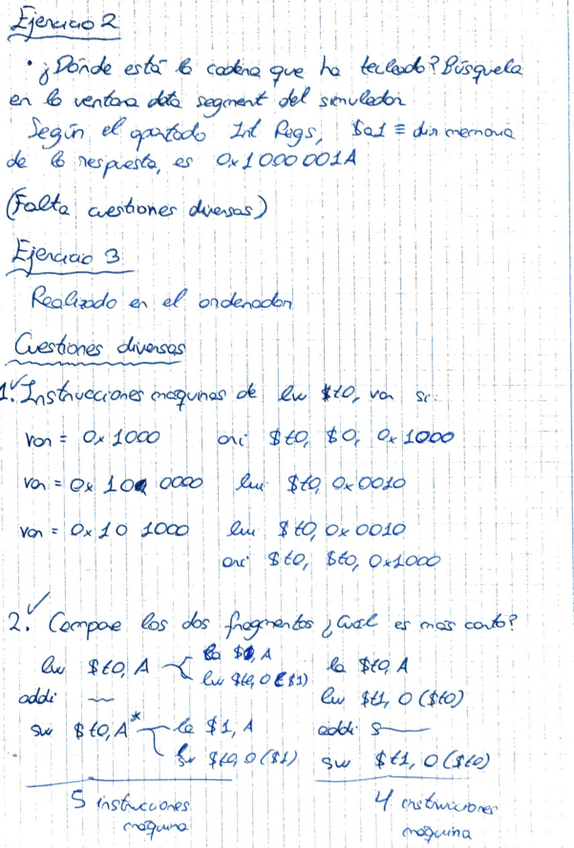 Ejercicio 2
• ¿Dónde está la cadena que ha tecleado? Búsquela
en la ventana data segment del simulador
Según el apartado Int Regs, $a1 ≡ dir memoria
de la respuesta, es 0x1000001A
(Falta cuestiones diversas)
Ejercicio 3
Realizado en el ordenador
Cuestiones diversas
1. Instrucciones maquinas de lw $t0, var si:
var = 0x1000 ori $t0, $0, 0x1000
var = 0x10 0000 lui $t0, 0x0010
var = 0x10 1000 lui $t0, 0x0010
ori $t0, $t0, 0x1000
2. Compare los dos fragmentos ¿Cual es mas corto?
lw $t0, A la $1, A la $t0, A
lw $t0, 0($1) lw $t1, 0($t0)
addi addi $
sw $t0, A* la $1, A
sw $t0, 0($1) sw $t1, 0($t0)
5 instrucciones 4 instrucciones
maquina maquina